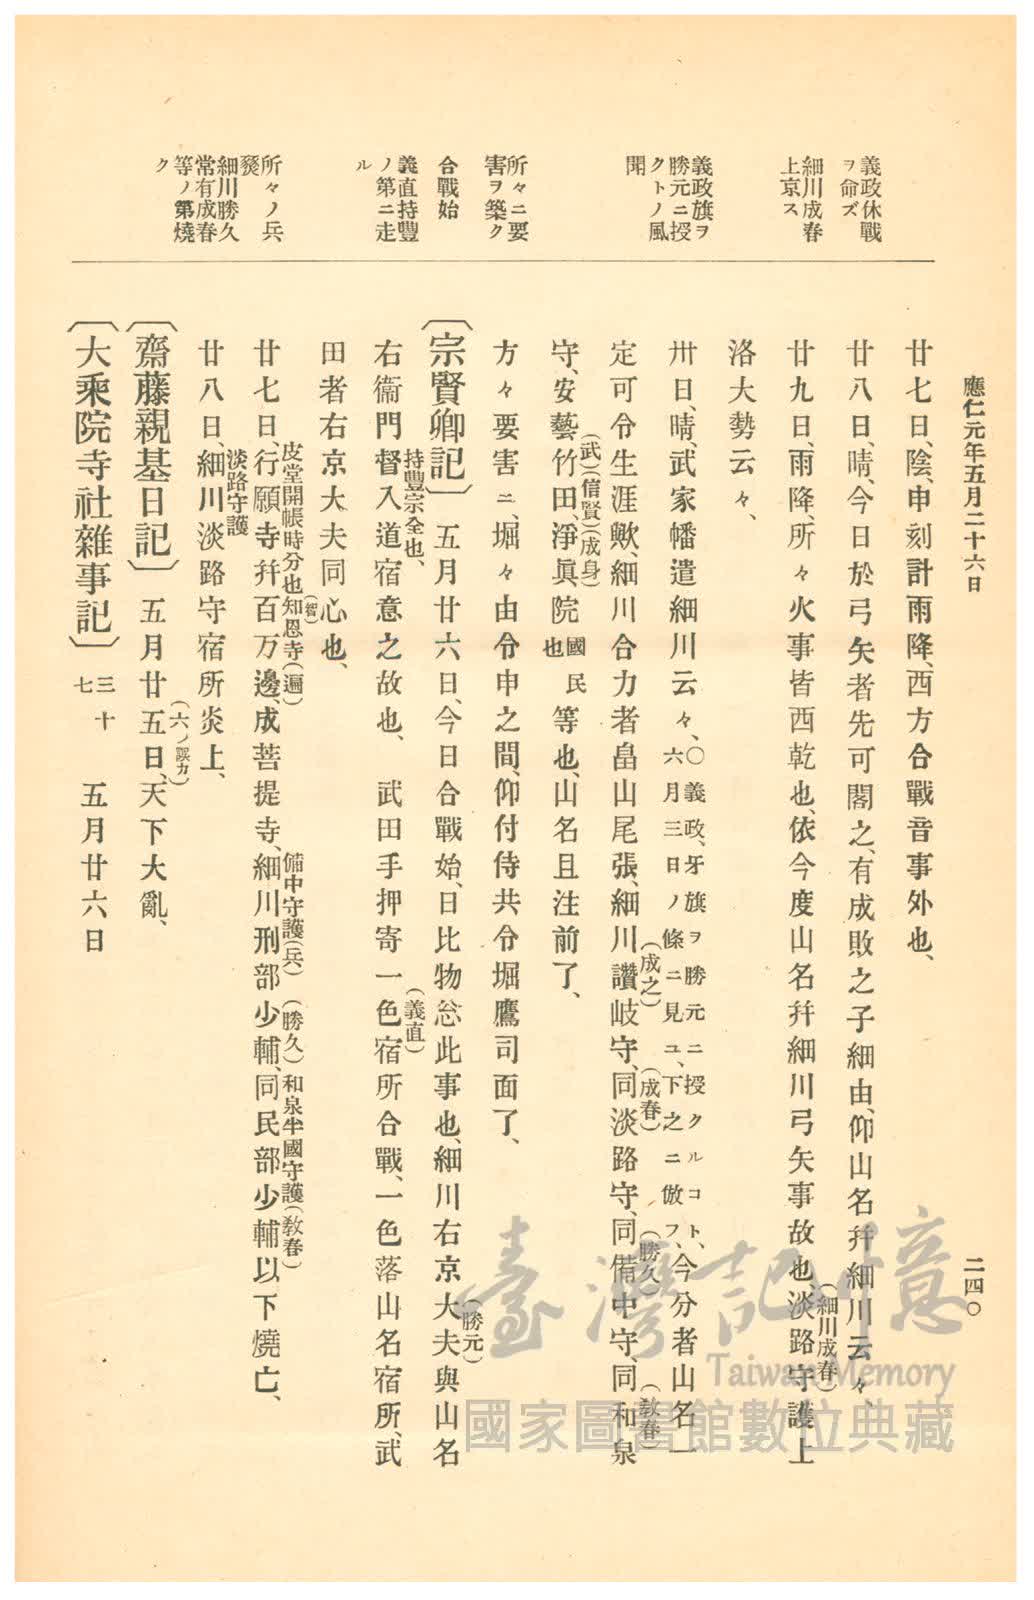 應仁元年五月二十六日
二四〇
義政休戰
ヲ命ズ
細川成春
上京ス
義政旗ヲ
勝元ニ授
クトノ風
聞
所々ニ要
害ヲ築ク
合戰始
義直持豐
ノ第ニ走
ル
所々ノ兵
燹
細川勝久
常有成春
等ノ第燒
ク
廿七日、陰、申刻計雨降、西方合戰音事外也、
廿八日、晴、今日於弓矢者先可閣之、有成敗之子細由、仰山名幷細川云々、
廿九日、雨降、所々火事皆西乾也、依今度山名幷細川弓矢事故也、淡路守護上
(細川成春)
洛大勢云々、
卅日、晴、武家幡遣細川云々、〇義政、牙旗ヲ勝元ニ授クルコト、六月三日ノ條ニ見ユ、下之ニ倣フ、今分者山名一
定可令生涯歟、細川合力者畠山尾張、細川讚岐守、同淡路守、同備中守、同和泉
(成之)(成春)(勝久)(敎春)
守、安藝竹田、淨眞院國民也等也、山名且注前了、
(武)(信賢)(成身)
方々要害ニ、堀々由令申之間、仰付侍共令堀鷹司面了、
〔宗賢卿記〕 五月廿六日、今日合戰始、日比物忩此事也、細川右京大夫與山名
(勝元)
右衞門督入道宿意之故也、 武田手押寄一色宿所合戰、一色落山名宿所、武
持豐宗全也、(義直)
田者右京大夫同心也、
廿七日、行願寺幷百万邊、成菩提寺、細川刑部少輔、同民部少輔以下燒亡、
皮堂開帳時分也知恩寺(智)(遍)備中守護(兵)(勝久)和泉半國守護(敎春)
廿八日、細川淡路守宿所炎上、
淡路守護
〔齋藤親基日記〕 五月廿五日、天下大亂、
(六ノ誤カ)
〔大乘院寺社雜事記〕 三十七 五月廿六日
臺灣記憶
Taiwan Memory
國家圖書館數位典藏